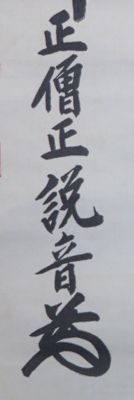 正僧正説音為